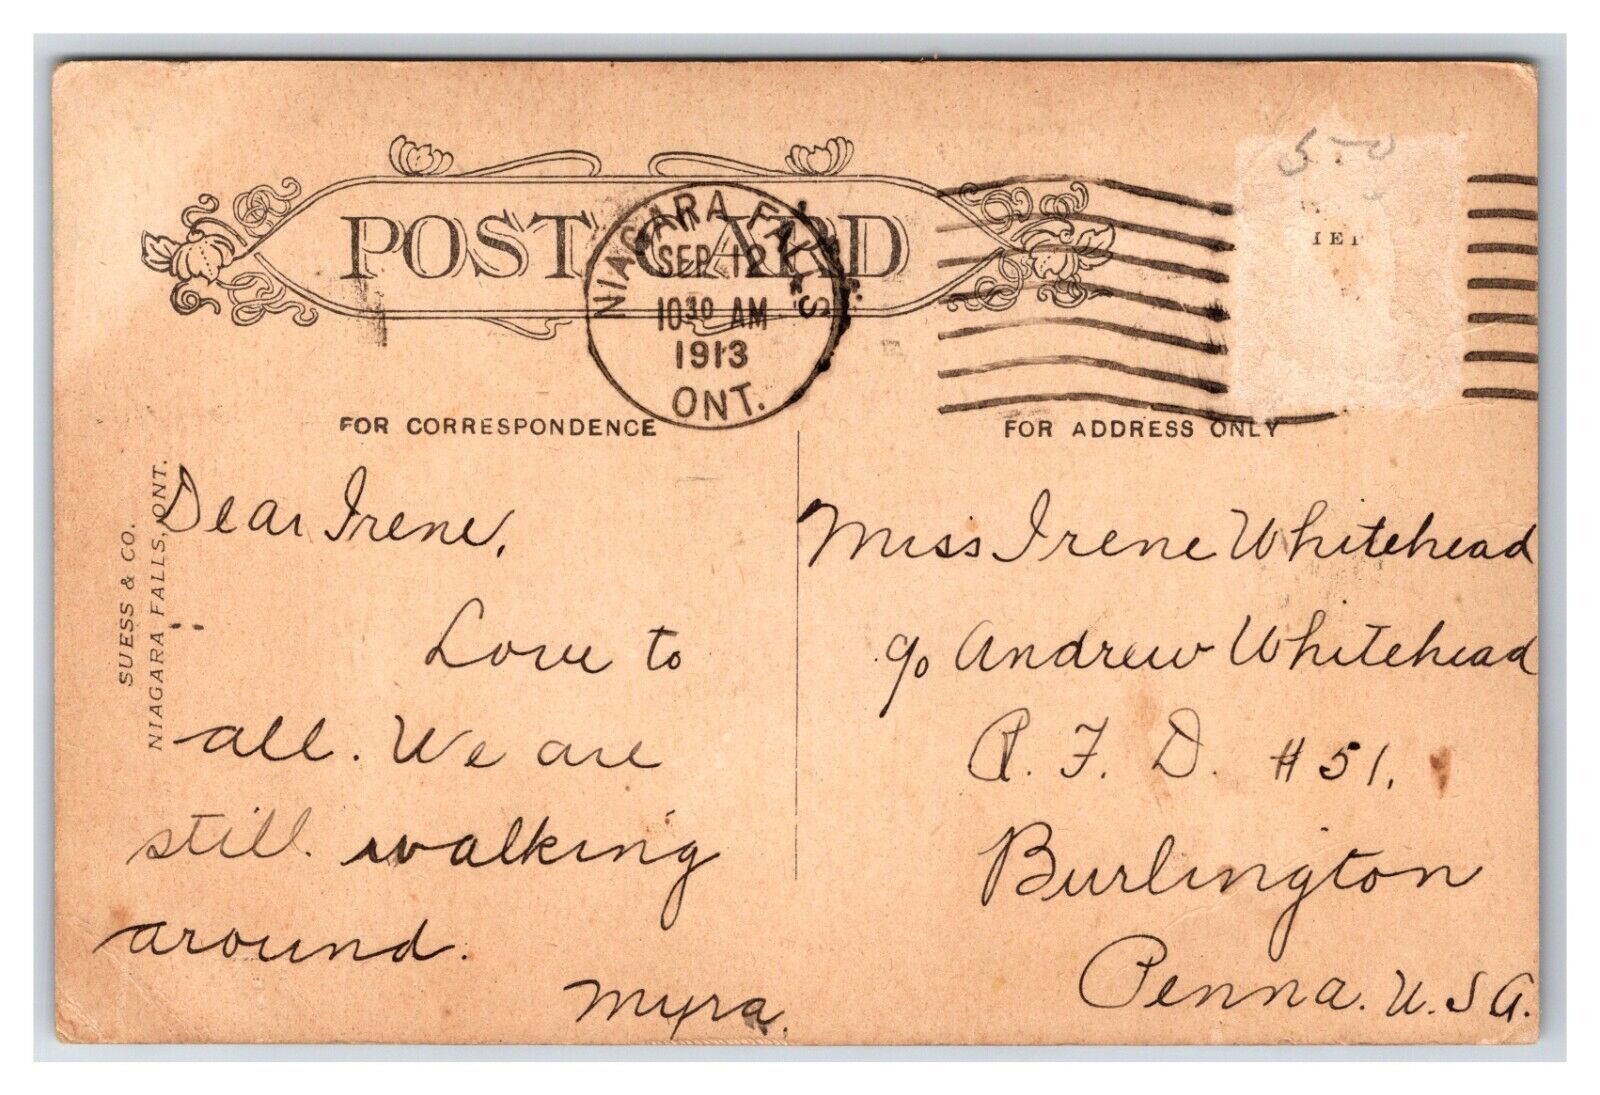 POST CARD
NIAGARA FALLS
SEP 12
10 30 AM
1913
ONT.
5-0
FOR CORRESPONDENCE
FOR ADDRESS ONLY
SUESS & CO.
NIAGARA FALLS, ONT.
Dear Irene,
Love to
all. We are
still walking
around.
Myra.
Miss Irene Whitehead
c/o Andrew Whitehead
R. F. D. #51.
Burlington
Penna. U.S.A.